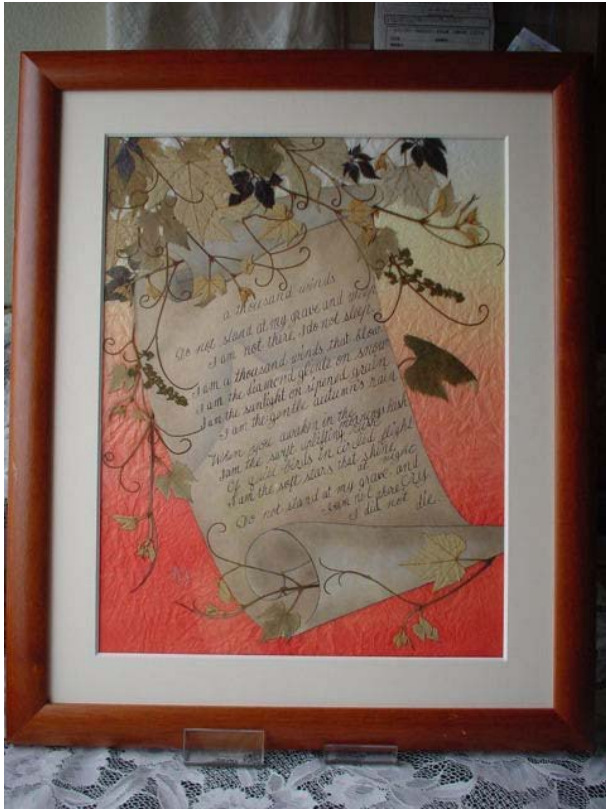 a thousand winds
Do not stand at my grave and weep
I am not there, I do not sleep
I am a thousand winds that blow
I am the diamond glints on snow
I am the sunlight on ripened grain
I am the gentle autumn's rain
When you awaken in the morning's hush
I am the swift uplifting rush
Of quiet birds in circled flight
I am the soft stars that shine at night
Do not stand at my grave and cry
I am not there
I did not die